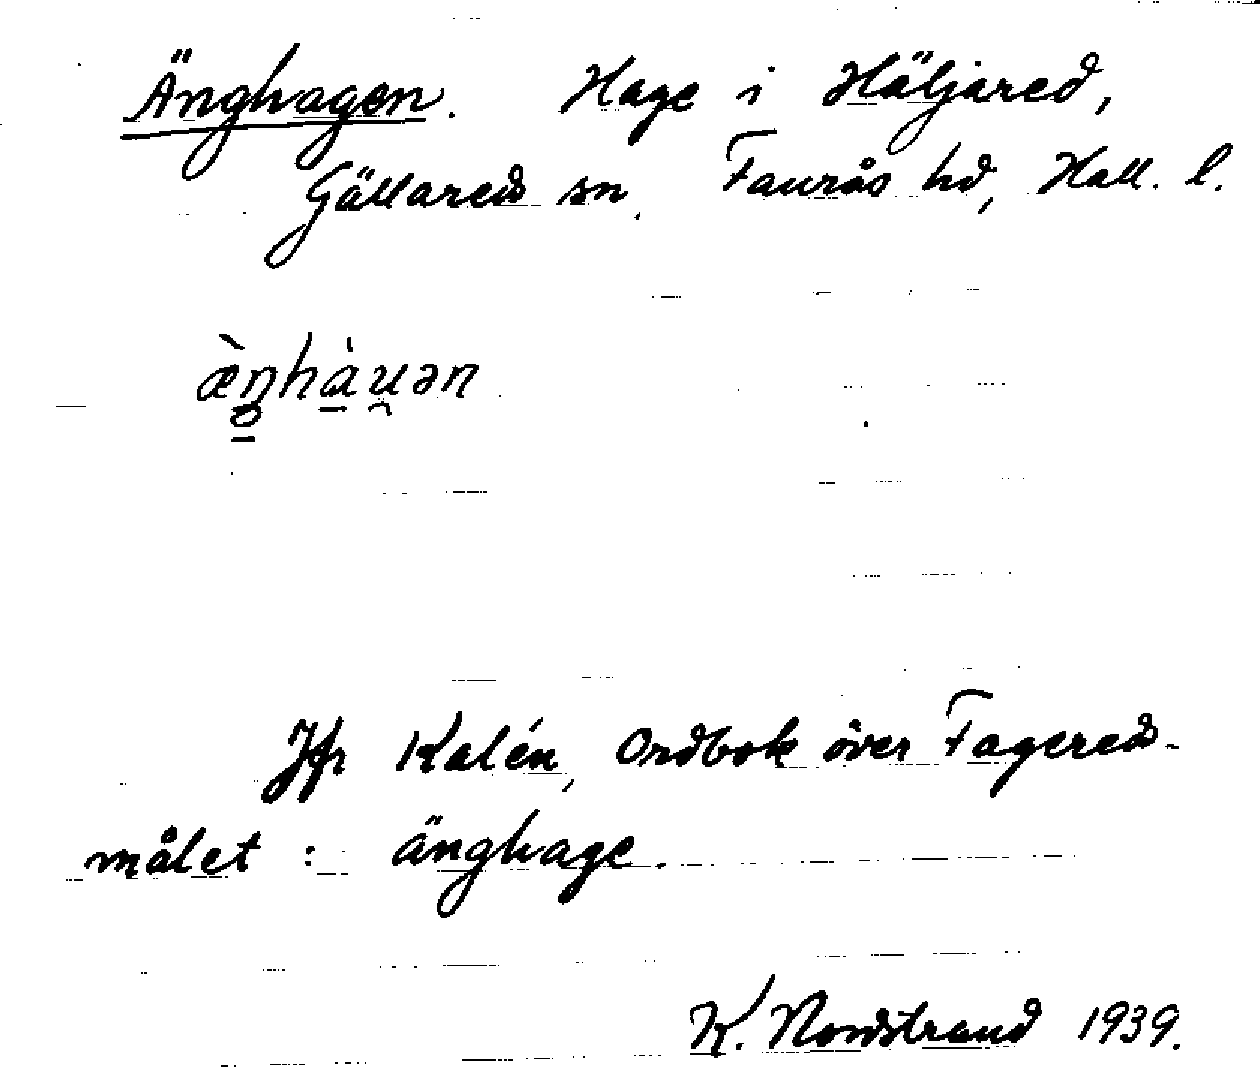 Änghagen. Hage i Häljared,
Gällareds sn, Faurås hd, Hall. l.
æ̀ŋhàu̯ən
Jfr Kalén, Ordbok över Fagereds-
målet: änghage.
K. Nordstrand 1939.